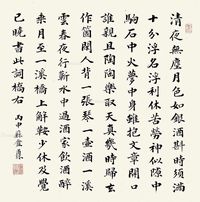 清夜無塵月色如銀酒斟時須滿
十分浮名浮利休苦勞神似隙中
駒石中火夢中身雖抱文章開口
誰親且陶陶樂取天真幾時歸去
作箇閒人背一張琴一壺酒一溪
雲春夜行蘄水中過酒家飲酒醉
乘月至一溪橋上解鞍少休及覺
已曉書此詞橋右
丙申